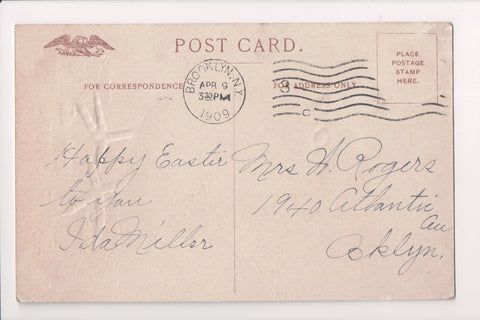 POST CARD.
PLACE
POSTAGE
STAMP
HERE.
FOR CORRESPONDENCE
FOR ADDRESS ONLY.
BROOKLYN, N.Y.
APR 9
3 30 PM
1909
8
C
Happy Easter
to you
Ida Miller
Mrs H. Rogers
1940 Atlantic
Av
Bklyn.